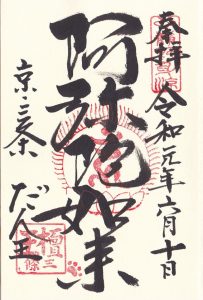 奉拝
令和元年六月十日
阿弥陀如来
京三条
だん王
三條
檀王